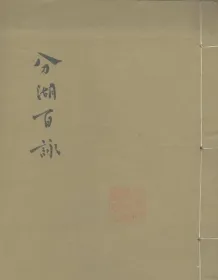 分湖百詠